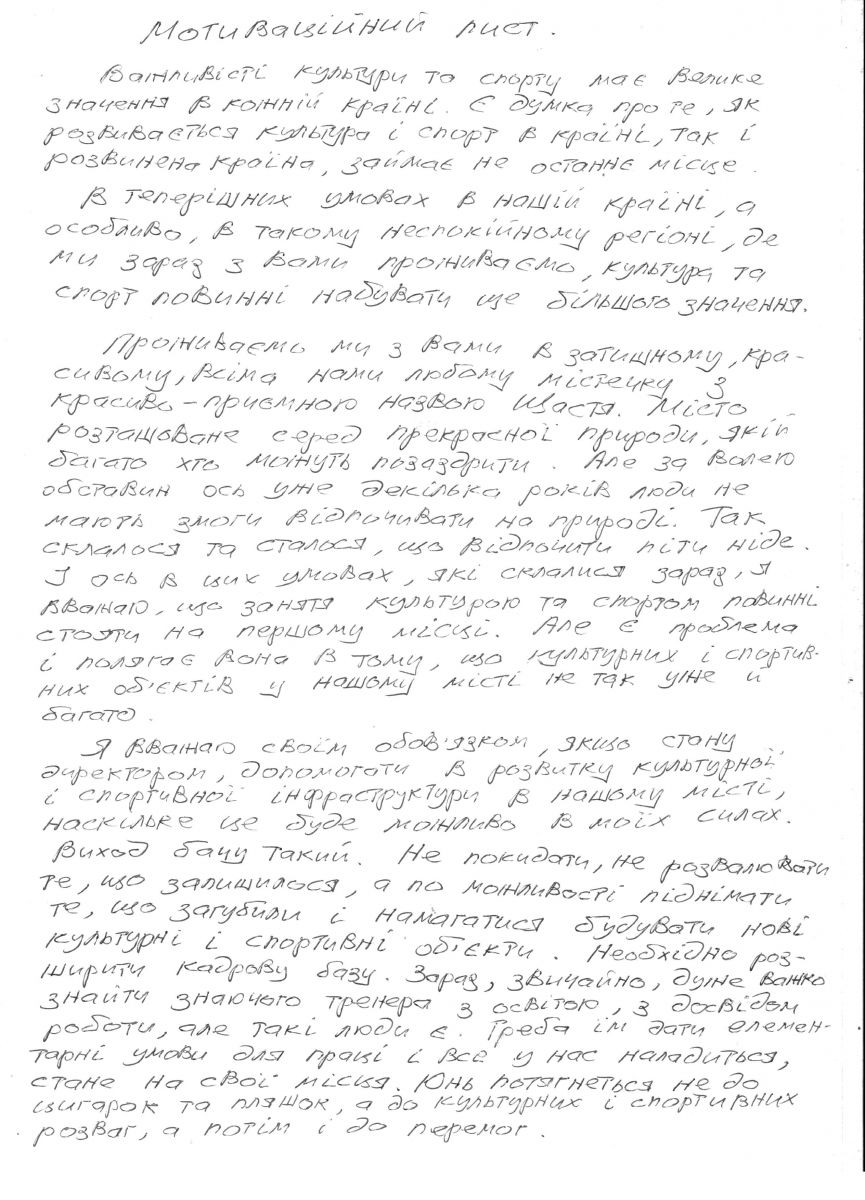 Мотиваційний лист.
Важливісті культури та спорту має велике
значення в кожній країні. Є думка про те, як
розвивається культура і спорт в країні, так і
розвинена країна, займає не останнє місце.
В теперішних умовах в нашій країні, а
особливо, в такому неспокійному регіоні, де
ми зараз з Вами проживаємо, культура та
спорт повинні набувати ще більшого значення.
Проживаємо ми з Вами в затишному, кра-
сивому, всіма нами любому містечку з
красиво-приємною назвою Щастя. Місто
розташоване серед прекрасної природи, якій
багато хто можуть позаздрити. Але за волею
обставин ось уже декілька років люди не
мають змоги відпочивати на природі. Так
склалося та сталося, що відпочити піти ніде.
І ось в цих умовах, які склалися зараз, я
вважаю, що заняття культурою та спортом повинні
стояти на першому місці. Але є проблема
і полягає вона в тому, що культурних і спортив-
них об'єктів у нашому місті не так уже й
багато.
Я вважаю своїм обов'язком, якщо стану
директором, допомогати в розвитку культурної
і спортивної інфраструктури в нашому місті,
наскільке це буде можливо в моїх силах.
Виход бачу такий. Не покидати, не розвалювати
те, що залишилося, а по можливості піднімати
те, що загубили і намагатися будувати нові
культурні і спортивні об'єкти. Необхідно роз-
ширити кадрову базу. Зараз, звичайно, дуже важко
знайти знаючого тренера з освітою, з досвідом
роботи, але такі люди є. Треба їм дати елемен-
тарні умови для праці і все у нас наладиться,
стане на свої місця. Юнь потягнеться не до
цигарок та пляшок, а до культурних і спортивних
розваг, а потім і до перемог.